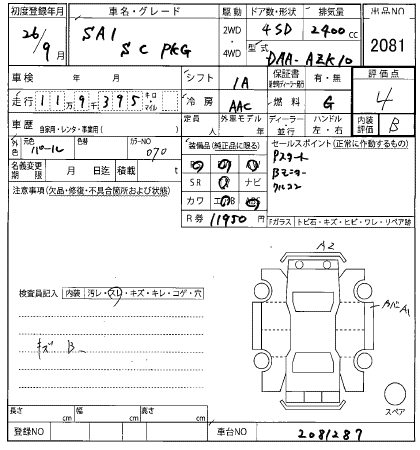 初度登録年月 車名・グレード 駆動 ドア数・形状 排気量 出品NO
26/9月 SAI 2WD 4SD 2400cc 2081
S C PKG 4WD 型式 DAA-AZK10
車検 年 月 シフト IA 保証書 有・無 評価点
走行 119千395 キロ・マイル 冷房 AAC 燃料 G 4
車歴 自家用・レンタ・事業用( ) 定員 外車モデル年式 ディーラー 並行 ハンドル 左・右 内装評価 B
外色 元色 パール 色替 カラーNO 070 装備品(純正品に限る) セールスポイント(正常に作動するもの)
名義変更期限 月 日迄 積載 t SR ナビ Pスタート
注意事項(欠品・修復・不具合箇所および状態) カワ Bモニター
R券 11950円 Fガラス トビ石・キズ・ヒビ・ワレ・リペア跡
A2
検査員記入 内装 汚レ・スレ・キズ・キレ・コゲ・穴
A1
キズ B
スペア
長さ cm 幅 cm 高さ cm
登録NO 車台NO 2081287